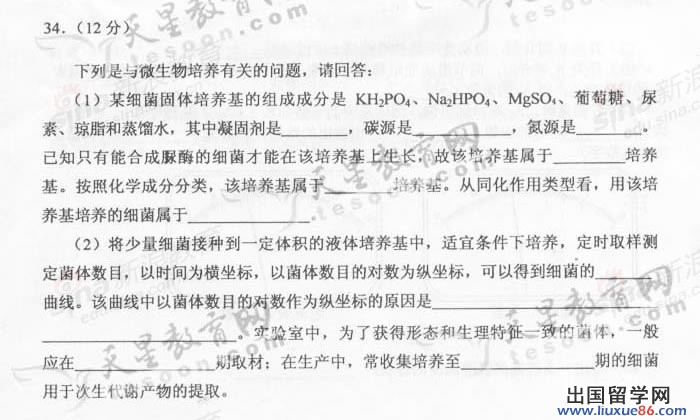 34.（12 分）
下列是与微生物培养有关的问题，请回答：
（1）某细菌固体培养基的组成成分是 KH₂PO₄、Na₂HPO₄、MgSO₄、葡萄糖、尿
素、琼脂和蒸馏水，其中凝固剂是________，碳源是____________，氮源是________。
已知只有能合成脲酶的细菌才能在该培养基上生长，故该培养基属于_________培养
基。按照化学成分分类，该培养基属于________培养基。从同化作用类型看，用该培
养基培养的细菌属于_______________。
（2）将少量细菌接种到一定体积的液体培养基中，适宜条件下培养，定时取样测
定菌体数目，以时间为横坐标，以菌体数目的对数为纵坐标，可以得到细菌的_______
曲线。该曲线中以菌体数目的对数作为纵坐标的原因是__________________________
________________________。实验室中，为了获得形态和生理特征一致的菌体，一般
应在________________期取材；在生产中，常收集培养至________________期的细菌
用于次生代谢产物的提取。
天星教育网
tesoon.com
sina新浪
edu.sina.com
出国留学网
www.liuxue86.com